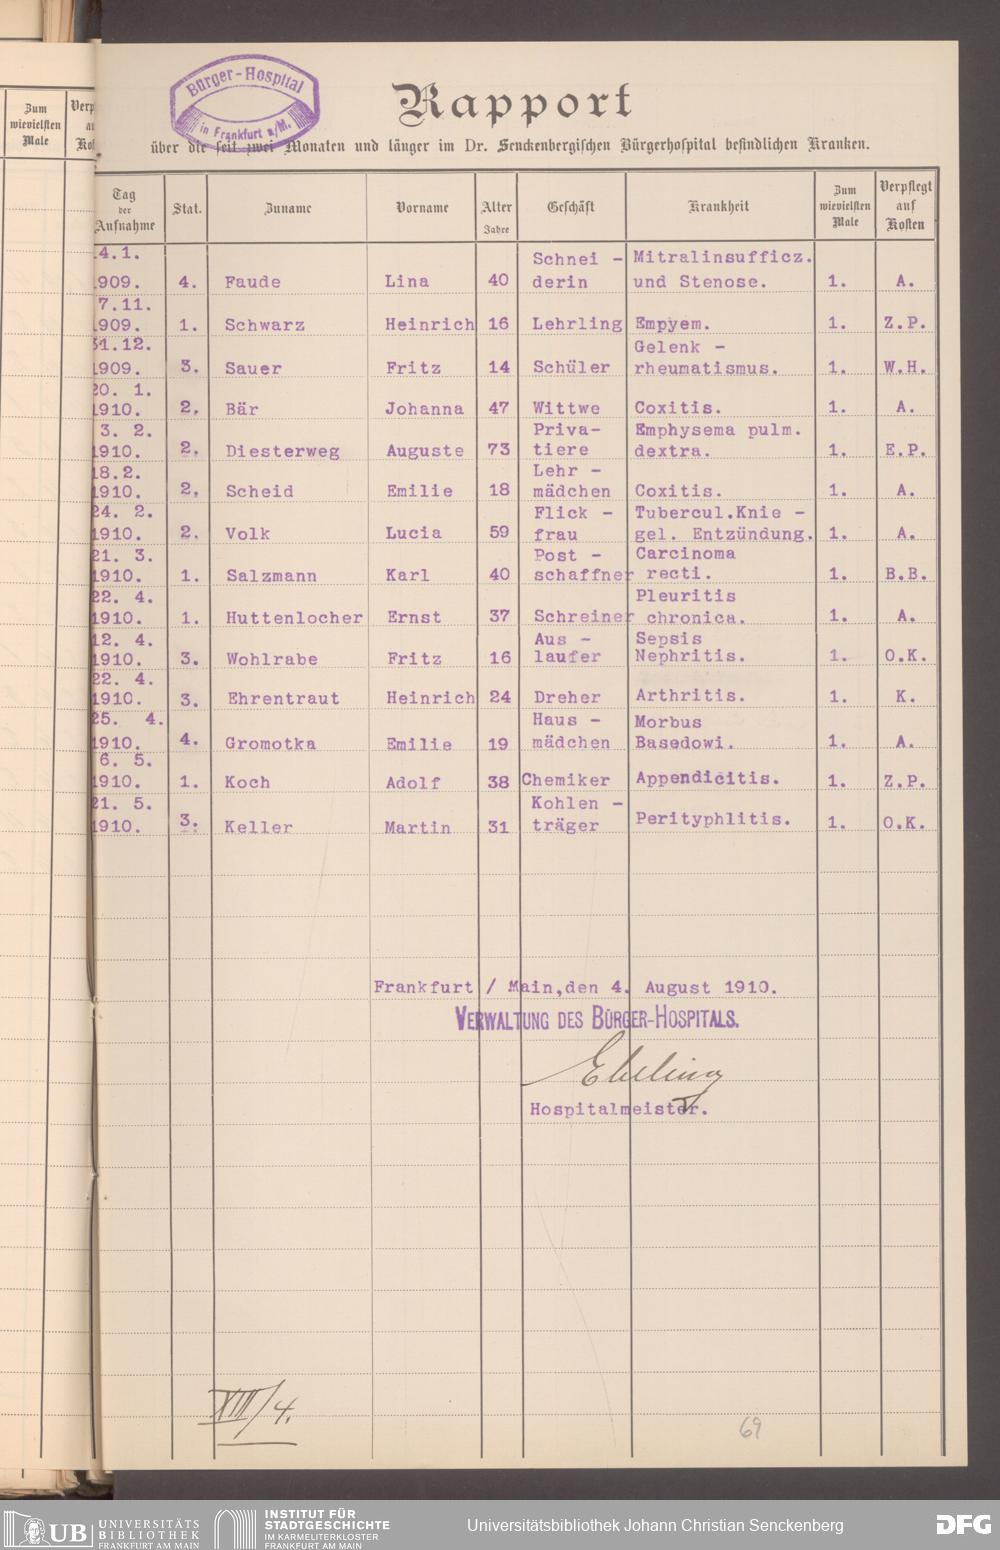 Zum
wievielsten
Male
Bürger-Hospital
in Frankfurt a/M.
Rapport
über die seit zwei Monaten und länger im Dr. Senckenbergischen Bürgerhospital befindlichen Kranken.
Tag der Aufnahme | Stat. | Zuname | Vorname | Alter Jahre | Geschäft | Krankheit | Zum wievielsten Male | Verpflegt auf Kosten
4.1. Schnei - Mitralinsufficz.
909. 4. Faude Lina 40 derin und Stenose. 1. A.
7.11.
909. 1. Schwarz Heinrich 16 Lehrling Empyem. 1. Z.P.
31.12. Gelenk -
909. 3. Sauer Fritz 14 Schüler rheumatismus. 1. W.H.
20. 1.
1910. 2. Bär Johanna 47 Wittwe Coxitis. 1. A.
3. 2. Priva- Emphysema pulm.
1910. 2. Diesterweg Auguste 73 tiere dextra. 1. E.P.
18.2. Lehr -
1910. 2. Scheid Emilie 18 mädchen Coxitis. 1. A.
24. 2. Flick - Tubercul.Knie -
1910. 2. Volk Lucia 59 frau gel. Entzündung. 1. A.
21. 3. Post - Carcinoma
1910. 1. Salzmann Karl 40 schaffner recti. 1. B.B.
22. 4. Pleuritis
1910. 1. Huttenlocher Ernst 37 Schreiner chronica. 1. A.
12. 4. Aus - Sepsis
1910. 3. Wohlrabe Fritz 16 laufer Nephritis. 1. O.K.
22. 4.
1910. 3. Ehrentraut Heinrich 24 Dreher Arthritis. 1. K.
25. 4. Haus - Morbus
1910. 4. Gromotka Emilie 19 mädchen Basedowi. 1. A.
6. 5.
1910. 1. Koch Adolf 38 Chemiker Appendicitis. 1. Z.P.
21. 5. Kohlen -
1910. 3. Keller Martin 31 träger Perityphlitis. 1. O.K.
Frankfurt / Main,den 4. August 1910.
VERWALTUNG DES BÜRGER-HOSPITALS.
Ebeling
Hospitalmeister.
XIII/4.
69
UB UNIVERSITÄTS
BIBLIOTHEK
FRANKFURT AM MAIN
INSTITUT FÜR
STADTGESCHICHTE
IM KARMELITERKLOSTER
FRANKFURT AM MAIN
Universitätsbibliothek Johann Christian Senckenberg
DFG